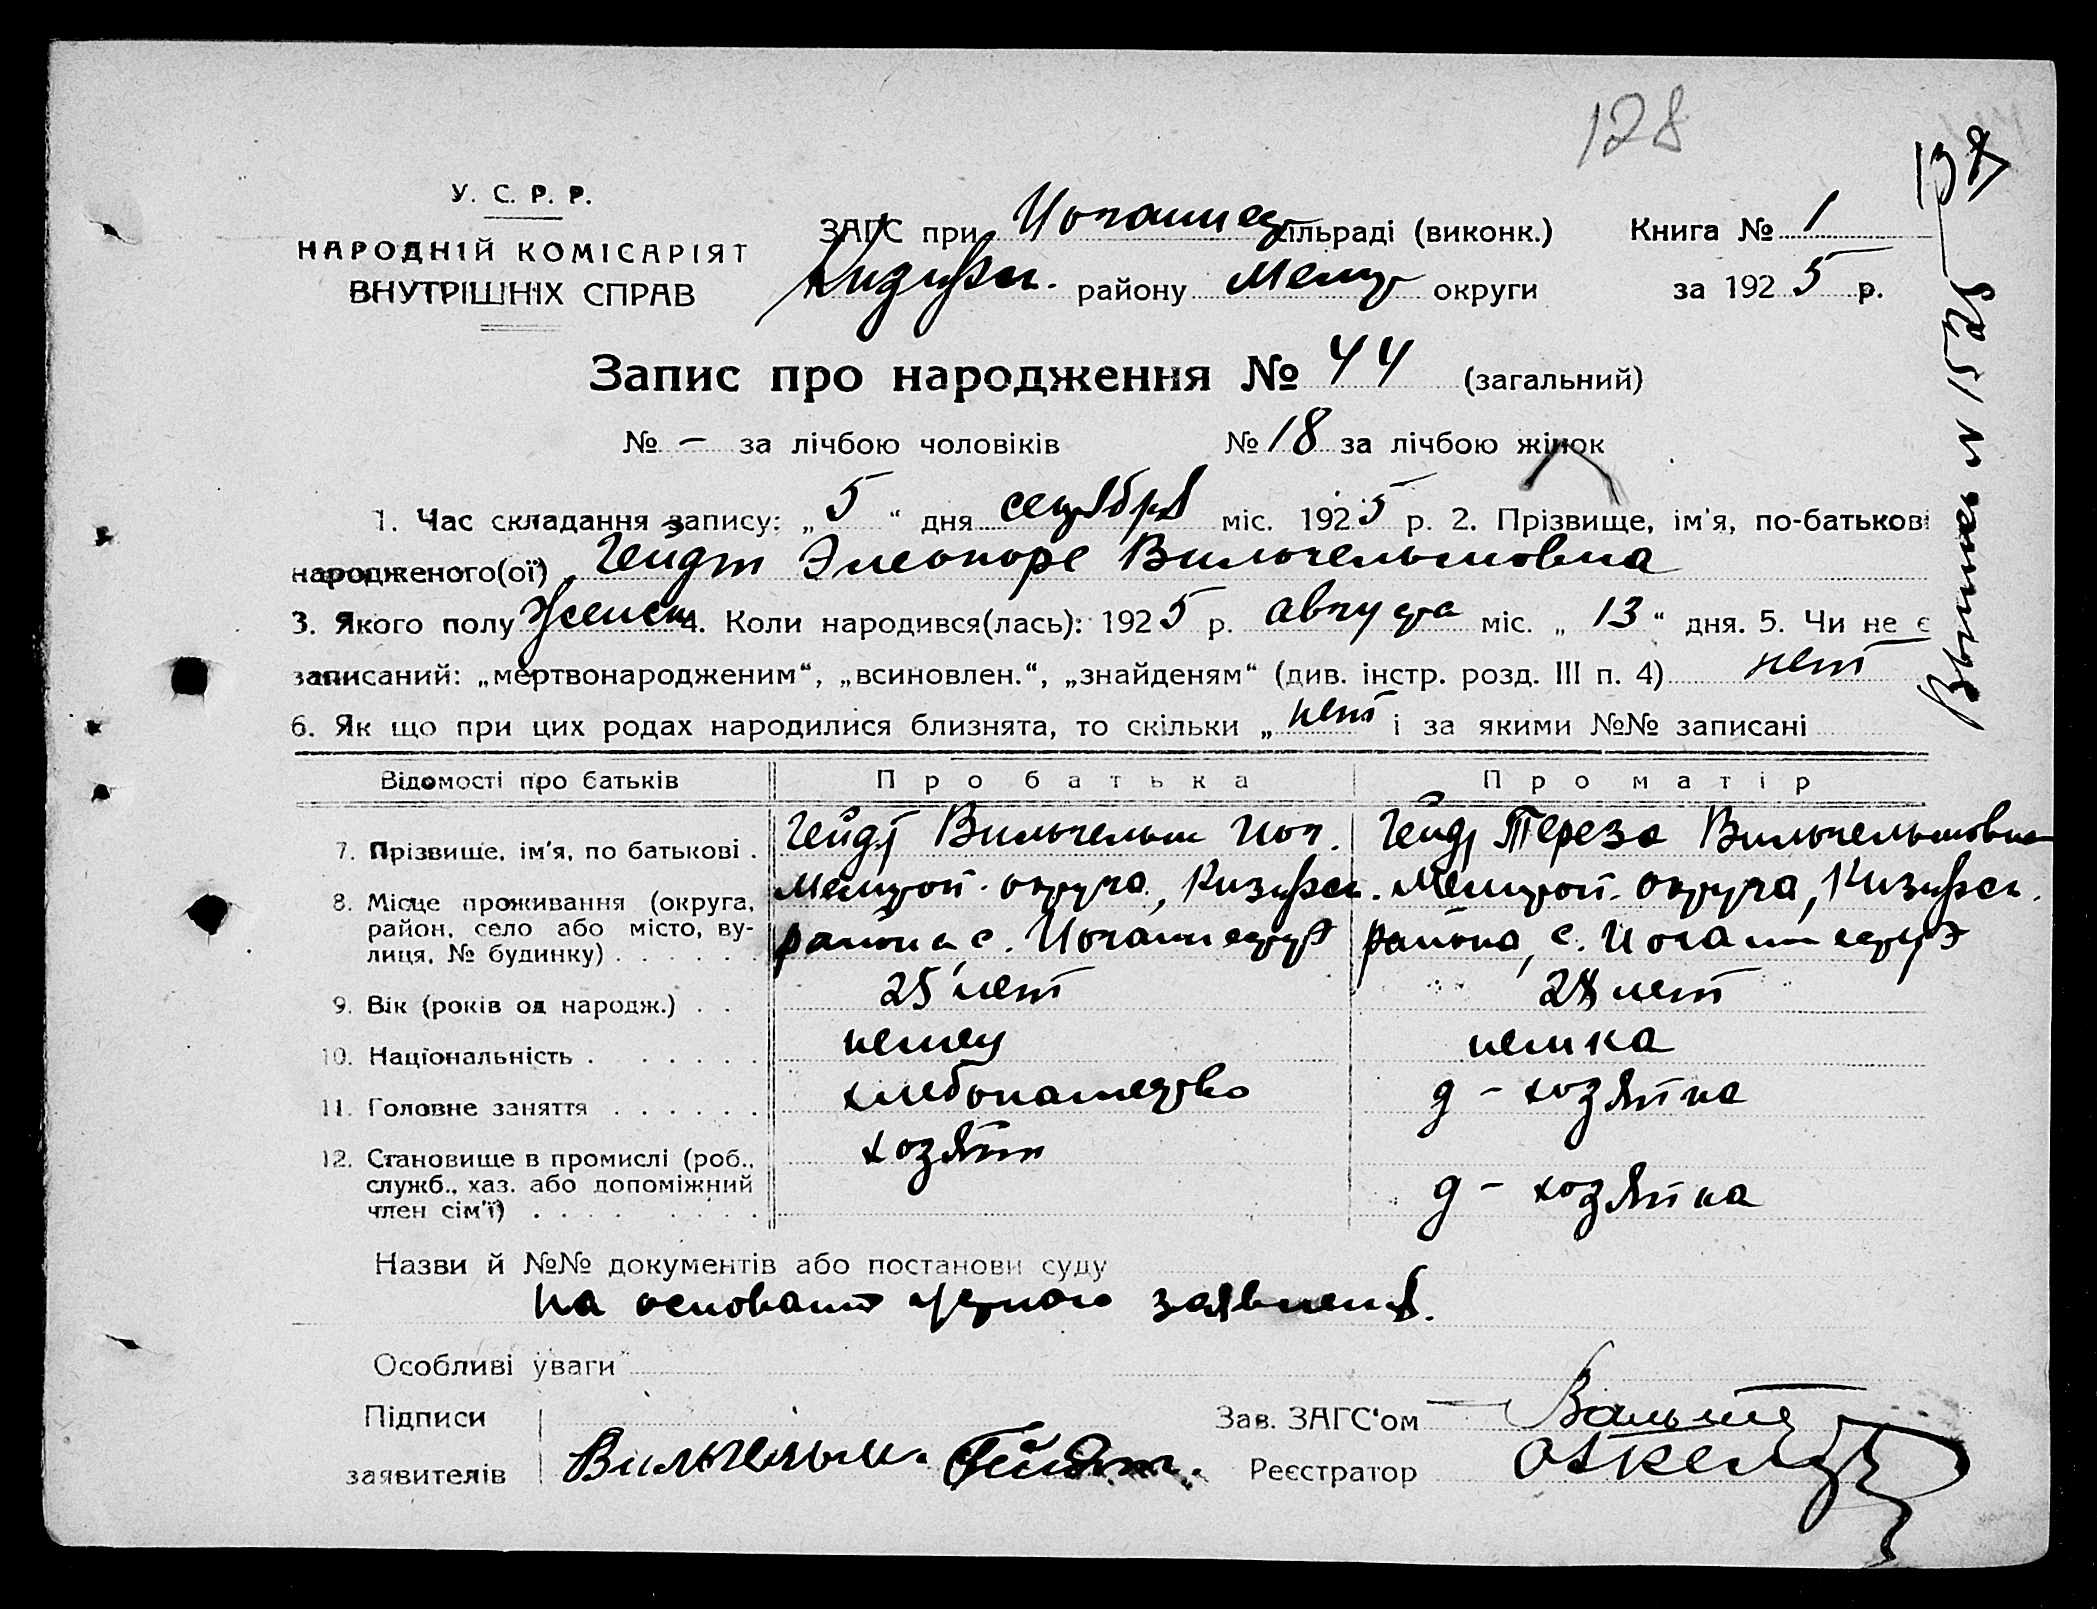 128
У. С. Р. Р.
НАРОДНІЙ КОМІСАРІЯТ
ВНУТРІШНІХ СПРАВ
ЗАГС при сільраді (виконк.) Книга № 1
району Мелит округи за 1925 р.
Запис про народження № 44 (загальний)
№ – за лічбою чоловіків № 18 за лічбою жінок
1. Час складання запису: „ 5 “ дня сентября міс. 1925 р. 2. Прізвище, ім'я, по-батькові
народженого(ої) Гейдт Элеоноре Вильгельмовна
3. Якого полу Женск 4. Коли народився(лась): 1925 р. августа міс. „ 13 “ дня. 5. Чи не є
записаний: „мертвонародженим“, „всиновлен.“, „знайденям“ (див. інстр. розд. III п. 4) нет
6. Як що при цих родах народилися близнята, то скільки „ нет і за якими №№ записані
Відомості про батьків Про батька Про матір
7. Прізвище, ім'я, по батькові . Гейдт Вильгельм Иог. Гейдт Тереза Вильгельмовна
8. Місце проживання (округа, район, село або місто, вулиця, № будинку) . . . . . .
Мелитоп. округа, района с. Мелитоп. округа, района, с.
9. Вік (років од народж.) . . 25 лет лет
10. Національність . . . . . . немец немка
11. Головне заняття . . . . . . хлебопашество д - хозяйка
12. Становище в промислі (роб., служб., хаз. або допоміжний член сім'ї) . . . . . . . . хозяин д - хозяйка
Назви й №№ документів або постанови суду
на основании устного заявления.
Особливі уваги
Підписи
заявителів Вильгельм Гейдт.
Зав. ЗАГС'ом
Реєстратор